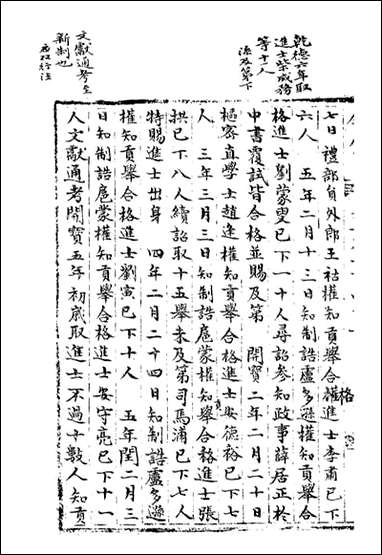 乾德六年取
進士柴成務
等十一人
及第下
文獻通考至
新制也
七日禮部員外郎王祜權知貢舉合權進士李肅已下
格
六人　五年二月十三日知制誥盧多遜權知貢舉合
格進士劉蒙叟已下一十人尋詔參知政事薛居正於
中書覆試皆合格並賜及第　開寶二年二月二十日
樞密直學士趙逢權知貢舉合格進士安德裕已下七
人　三年三月三日知制誥扈蒙權知舉合格進士張
貢
拱已下八人續詔取十五舉未及第司馬浦已下七人
特賜進士出身　四年二月二十四日知制誥盧多遜
權知貢舉合格進士劉寅已下十人　五年閏二月三
日知制誥扈蒙權知貢舉合格進士安守亮已下十一
人文獻通考開寶五年初歲取進士不過十數人知貢